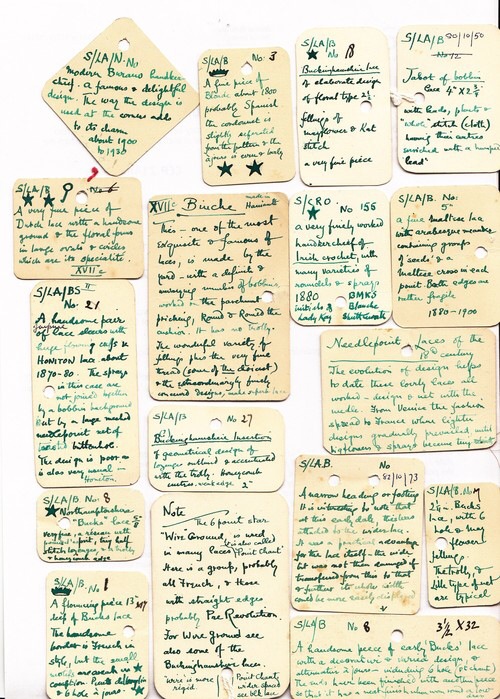 S/LA/N. No
Modern Burano handker-
chief. a famous & delightful
design. The way the design is
used at the corner adds
to its charm
about 1900
to 1930
S/LA/B No. 3
A fine piece of
Blonde about 1800
probably Spanish
the cordonnet is
slightly separated
from the pattern & the
S/LA/B No 18
Buckinghamshire lace
of elaborate design
of floral type 2½.
fillings of
mayflower & Kat
stitch
a very fine piece
S/LA/B 80/10/50
No 12
Jabot of bobbin
lace 4" X 2¾
with leads, plaits &
"whole" stitch (cloth)
having their centres
enriched with a
lead"
S/LA/B No 6
A very fine piece of
Dutch lace with a handsome
ground & the floral forms
in large ovals & circles
which are its speciality.
XVII c
XVII c Binche made in Hainault
This - one of the most
exquisite & famous of
laces, is made by the
yard - with a definite &
varying number of bobbins
worked in the parchment
pricking, Round & Round the
cushion. It has no trolly.
The wonderful variety of
fillings plus the very fine
thread (some of the choicest)
& the extraordinarily finely
conceived designs, make
S/CRO No 156
a very finely worked
handkerchief of
Irish crochet, with
many varieties of
roundels & sprays
1880 BMKS
Blanche
Lady Kay Shuttleworth
S/LA/B. No:
5
a fine Maltese lace
with arabesque meander
containing groups
of 'seeds' & a
maltese cross in each
point. Both edges are
rather fragile
1880 - 1900
S/LA/BS
No. 21
A handsome pair
of lace sleeves with
huge flowing cuffs in
HONITON lace about
1870-80. The sprays
in this case are
not joined together
by a bobbin background
But by a large meshed
needlepoint net of
without
The design is poor as
is also very usual in
Honiton.
Needlepoint laces of the
18th century
The evolution of design helps
to date these lovely laces all
worked - design & net with the
needle. From Venice the fashion
spread to France where lighter
designs gradually prevailed until
flowers & sprays became tiny
S/LA/B No 27
Buckinghamshire Insertion
a geometrical design of
lozenges outlined & accentuated
with the trolly. Honeycomb
centres. 2"
S/LA.B. No
82/10/73
A narrow heading or footing
It is interesting to note that
at this early date, this lace
attached to the wider lace
It was a practical advantage
for the lace itself - the wide
but was not then damaged if
transferred from this to that
& further its whole width
could be more easily displayed
S/LA/B No. 8
Northamptonshire
"Bucks" lace
S/LA/B. No 7
2¼. Bucks
lace, with 6
hole & may
flower
fillings.
The trolly, &
style type of net
are typical
Note
The 6 point star
"Wire Ground", is used
in many laces (is also called "Point chant")
Here is a group, probably
all French, & these
with straight edges
probably Pre Revolution.
For Wire Ground see
also some of the
Buckinghamshire laces.
wire is more
rigid.
Point chant
S/LA/B. No. 1
A flouncing piece 13"
deep of Bucks lace
The handsome
border is French in
style, but the small
motifs are
& 6 hole
S/LA/B No 8 3½ X 32
A handsome piece of early 'Bucks' lace
with a decorative & varied design &